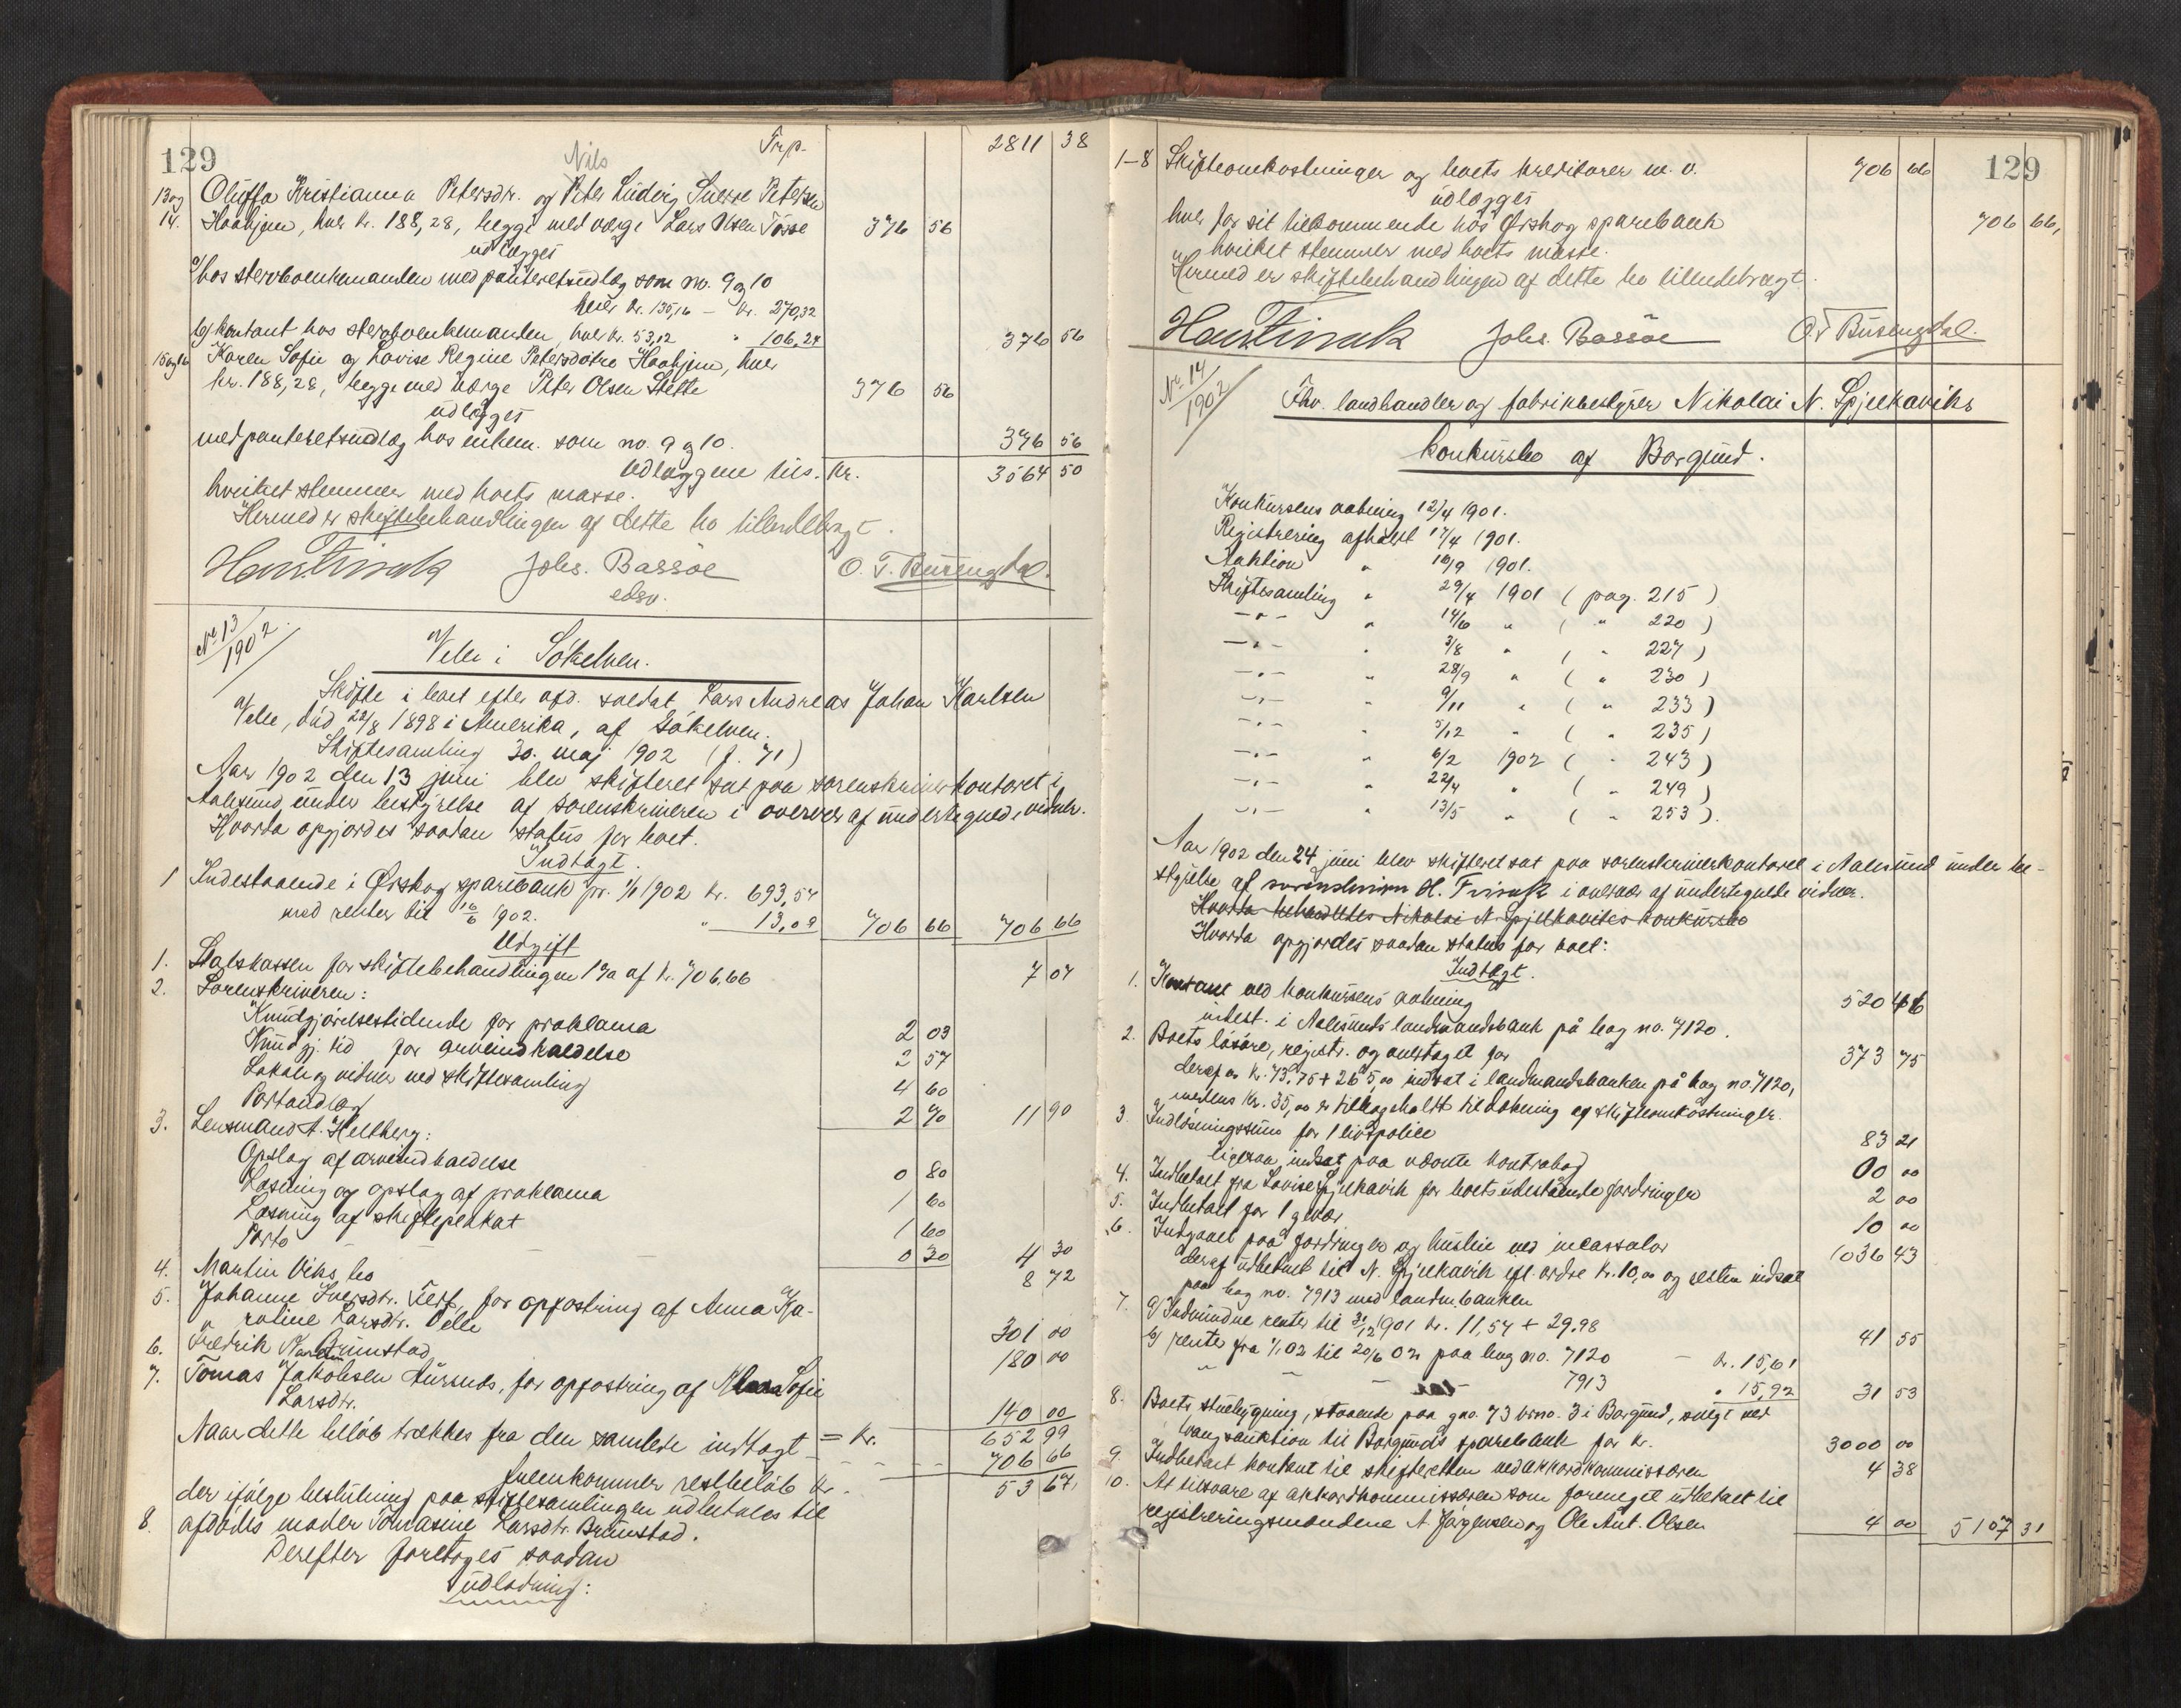 129
Trp. 2811 38
Nils
13 og Oluffa Kristianna Petersdr. og Peter Ludvig Sverre Petersen
14. Haahjem, hver kr. 188,28, begge med værge Lars Olsen Tørse 376 56
udlægges
a/ hos stervboenkemanden med panteretsudlæg som no. 9 og 10
hver kr. 135,16 — kr. 270,32
b/ kontant hos stervboenkemanden, hver kr. 53,12 " 106,24 376 56
15 og 16 Karen Sofie og Lovise Regine Petersdøtre Haahjem, hver
kr. 188,28, begge med værge Peter Olsen Stette 376 56
udlægges
med panteretsudlæg hos enkem. som no. 9 og 10. 376 56
Udlæggene tils. kr. 3564 50
hvilket stemmer med boets masse.
Hermed er skiftebehandlingen af dette bo tilendebragt.
Johs. Bassøe O. T. Busengdal.
edsv.
No. 13/1902.
Velle i Søkelven.
Skifte i boet efter afd. soldat Lars Andreas Johan Karlsen
Velle, død 22/8 1898 i Amerika, af Søkelven.
Skiftesamling 30. maj 1902 (p. 71)
Aar 1902 den 13 juni blev skifteret sat paa sorenskriverkontoret i
Aalesund under bestyrelse af sorenskriveren i overvær af undertegnede vidner.
Hvorda opgjordes saadan status for boet.
Indtægt.
1 Indestaaende i Ørskog sparebank pr. 1/1 1902 kr. 693,57
med renter til 16/6 1902. " 13,09 706 66 706 66
Udgift
1. Statskassen for skiftebehandlingen 1% af kr. 706,66 7 07
2. Sorenskriveren:
Kundgjørelsestidende for proklama 2 03
Kundgj. tid for arveindkaldelse 2 57
Lokale og vidner ved skiftesamling 4 60
Portoudlæg 2 70 11 90
3. Lensmand A. Hellberg:
Opslag af arveindkaldelse 0 80
Læsning og opslag af proklama 1 60
Læsning af skifteplakat 1 60
Porto 0 30 4 30
4. Martin Viks bo 8 72
5. Johanne Iversdr. , for opfostring af Anna Ka-
roline Larsdr. Velle 301 00
6. Fredrik Brunstad 180 00
7. Tomas Jakobsen Aursnes, for opfostring af Sofie
Larsdr. 140 00
= kr. 652 99
Naar dette beløb trækkes fra den samlede indtægt - - - 706 66
fremkommer restbeløb kr. 53 67,
der ifølge beslutning paa skiftesamlingen udbetales til
8. afdødes moder Tomasine Larsdr. Brunstad.
Derefter foretoges saadan
udlodning:
129
1-8 Skifteomkostninger og boets kreditorer m. v. 706 66
udlægges
hver for sit tilkommende hos Ørskog sparebank 706 66,
hvilket stemmer med boets masse.
Hermed er skiftebehandlingen af dette bo tilendebragt.
Johs. Bassøe O. T. Busengdal.
No. 14/1902
Fhv. landhandler og fabrikbestyrer Nikolai N. Spjelkaviks
konkursbo af Borgund.
Konkursens aabning 12/4 1901.
Registrering afholdt 17/4 1901.
Auktion " 10/9 1901.
Skiftesamling " 29/4 1901 (pag. 215)
—"— " 14/6 " ( " 220)
—"— " 3/8 " ( " 227)
—"— " 28/9 " ( " 230)
—"— " 9/11 " ( " 233)
—"— " 5/12 " ( " 235)
—"— " 6/2 1902 ( " 243)
—"— " 22/4 " ( " 249)
—"— " 13/5 " ( " 253).
Aar 1902 den 24 juni blev skifteret sat paa sorenskriverkontoret i Aalesund under be-
styrelse af sorenskriver H. Finsak i overvær af undertegnede vidner.
Hvorda behandledes Nikolai N. Spjelkaviks konkursbo
Hvorda opgjordes saadan status for boet:
Indtægt.
1. Kontant ved konkursens aabning 520 46
indest. i Aalesunds landmandsbank på bog no. 7120.
2. Boets løsøre, registr. og overtaget for 373 75
deraf er kr. 73,75 + 265,00 indsat i landmandsbanken på bog no. 7120,
medens kr. 35,00 er tilbageholdt til dækning af skifteomkostninger.
3 Indløsningssum for 1 livspolice 83 21
ligesaa indsat paa nævnte kontrabog
4. Indbetalt fra Lovise Spjelkavik for boets udestående fordringer 00 00
5. Indbetalt for 1 gevær 2 00
10 00
6. Indgaaet paa fordringer og husleie ved incassator 1036 43
deraf udbetalt til N. Spjelkavik efl. ordre kr. 10,00 og resten indsat
paa bog no. 7913 med landm.banken
7. a/ Indvundne renter til 31/12 1901 kr. 11,57 + 29,98 41 55
b/ rente fra 1/1 02 til 20/6 02 paa bog no. 7120 — kr. 15,61
" — — 7913 " 15,92 31 53
8. Boets stuebygning, staaende paa gno. 73 brno. 3 i Borgund, solgt ved
tvangsauktion til Borgunds sparebank for kr. 3000 00
9. Indbetalt kontant til skifteretten ved akkordkommissæren 4 38
10. At tilsvare af akkordkommissæren som formeget udbetalt til
registreringsmændene A. Jørgensen og Ole Ant. Olsen 4 00 5107 31